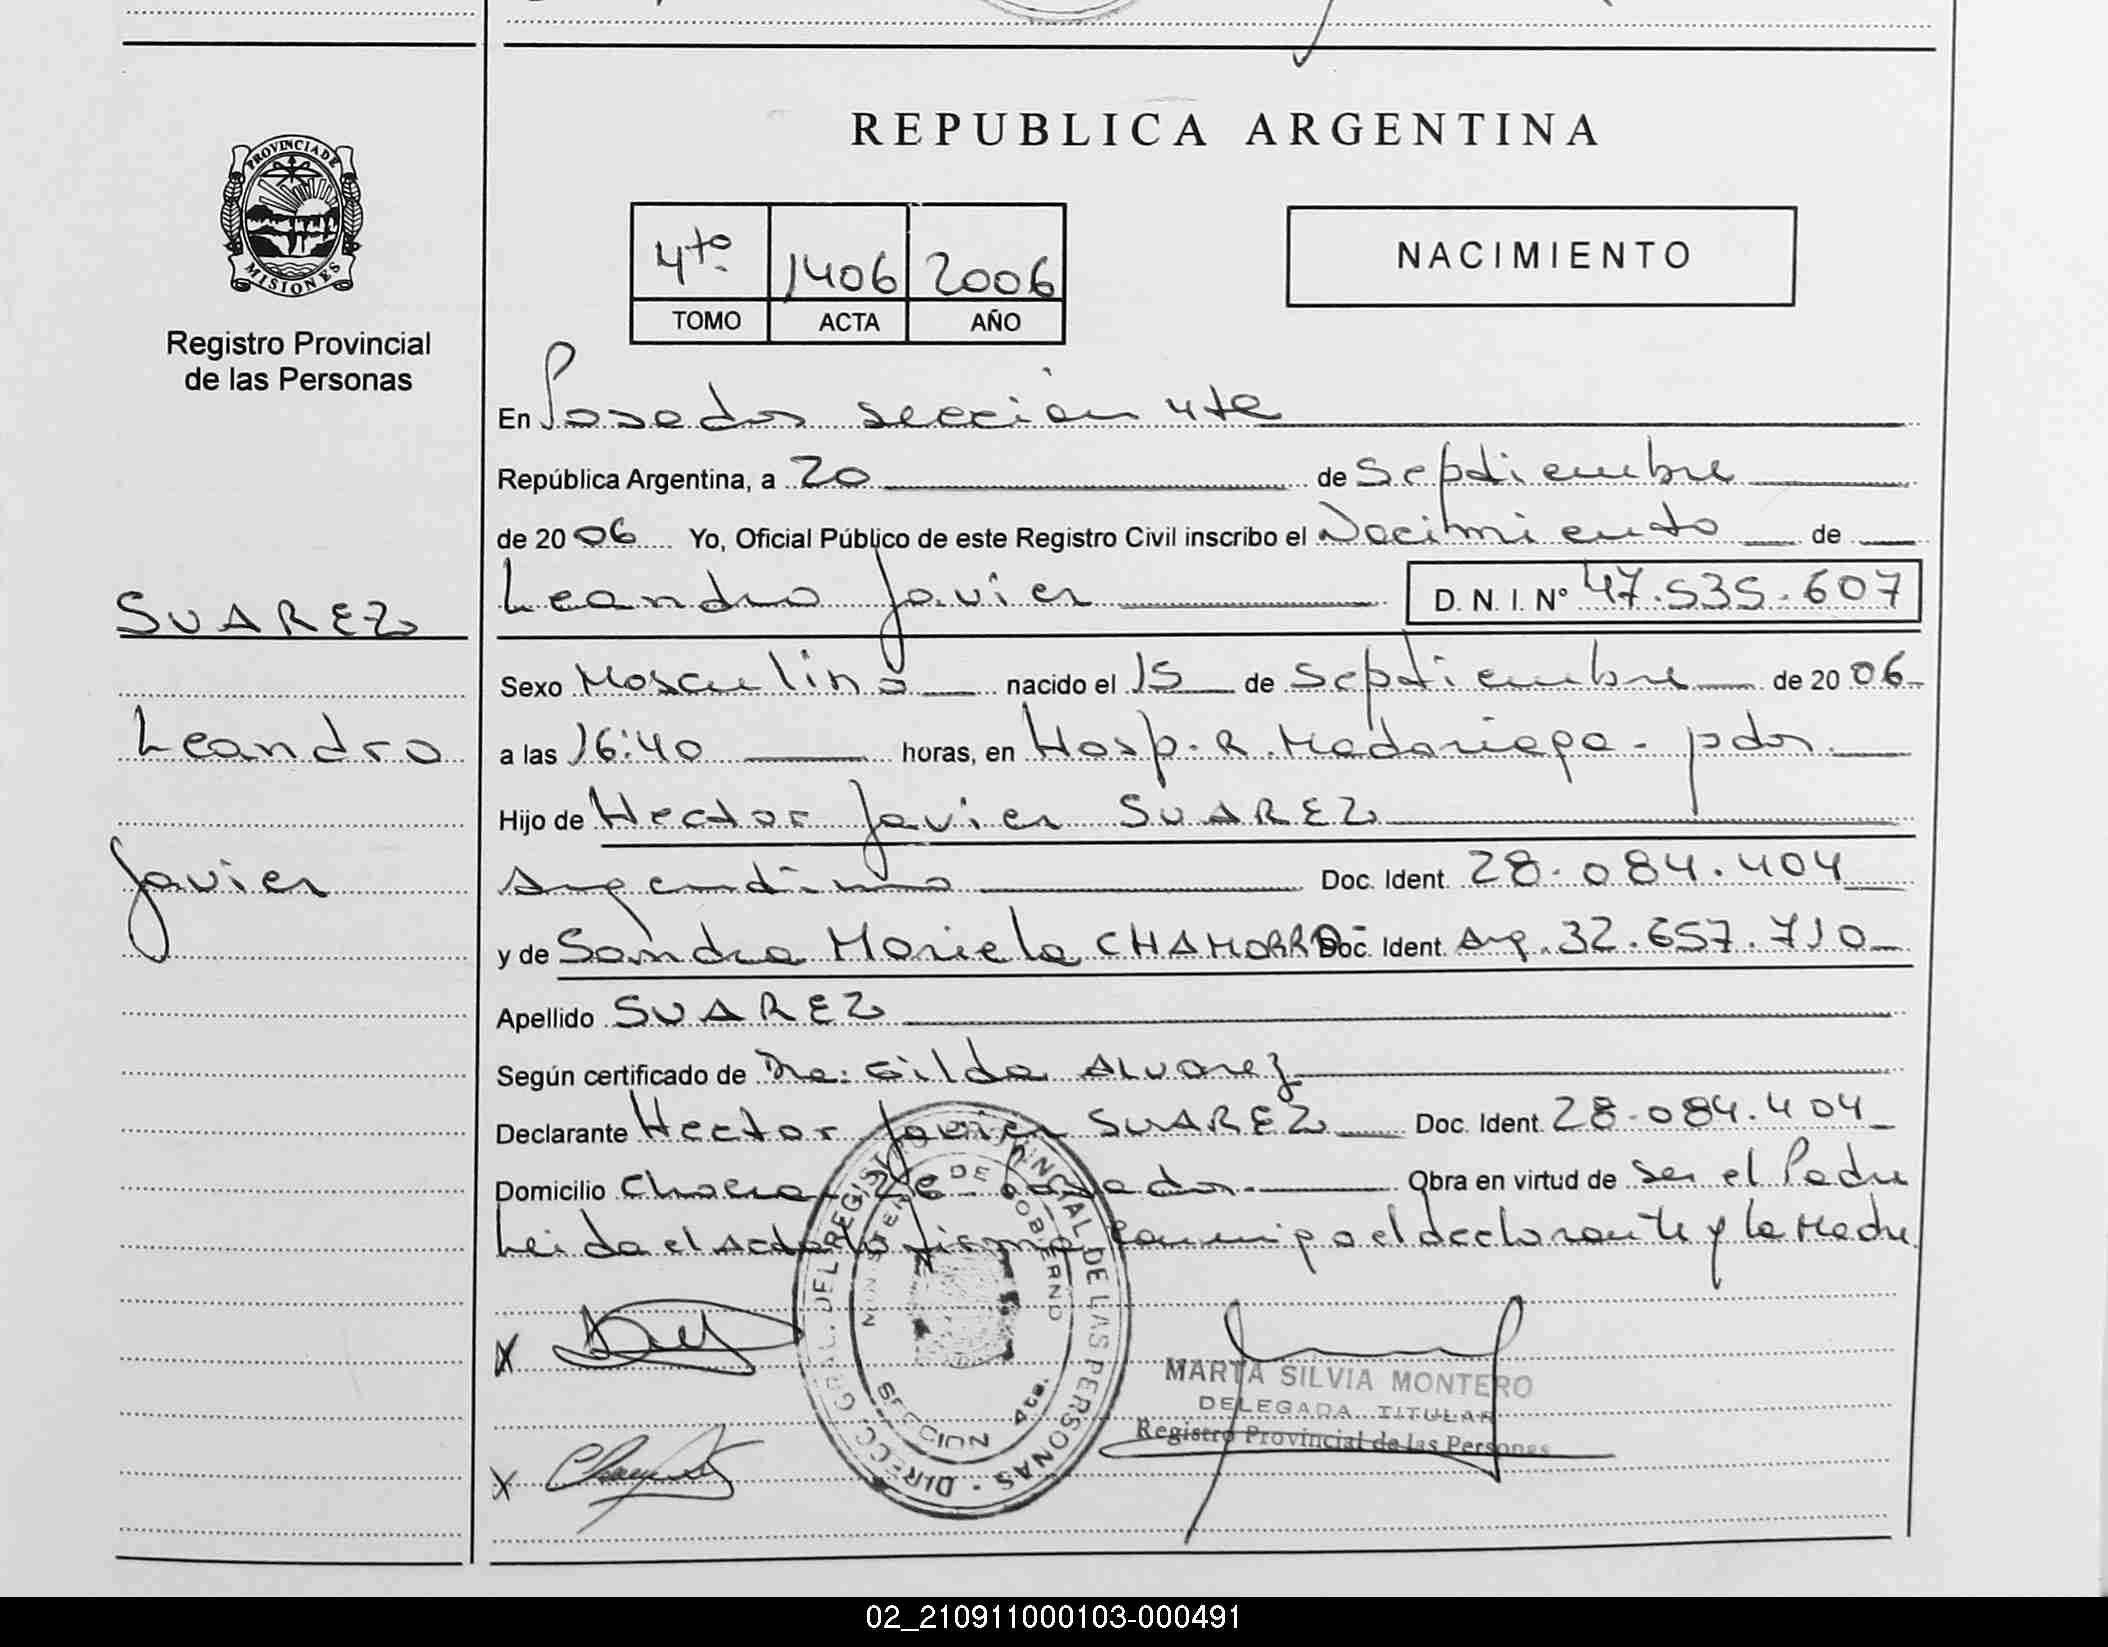 REPUBLICA ARGENTINA
PROVINCIA DE
MISIONES
Registro Provincial
de las Personas
4to. 1406 2006
TOMO ACTA AÑO
NACIMIENTO
En Posadas sección 4ta
República Argentina, a 20 de Septiembre
de 2006 Yo, Oficial Público de este Registro Civil inscribo el Nacimiento de
Leandro Javier D. N. I. Nº 47.535.607
SUAREZ
Leandro
Javier
Sexo Masculino nacido el 15 de Septiembre de 2006
a las 16:40 horas, en Hosp. R. Madariaga - pdas.
Hijo de Hector Javier SUAREZ
Argentino Doc. Ident. 28.084.404
y de Sandra Mariela CHAMORRO Doc. Ident. Arg. 32.657.710
Apellido SUAREZ
Según certificado de Dra. Gilda Alvarez
Declarante Hector Javier SUAREZ Doc. Ident. 28.084.404
Domicilio Chacra 26 - Posadas. Obra en virtud de ser el Padre
Leida el Acta la firma conmigo el declarante y la Madre
DIRECC. GRAL. DEL REGISTRO PROVINCIAL DE LAS PERSONAS
MINISTERIO DE GOBIERNO
SECCION 4ta.
X
MARTA SILVIA MONTERO
DELEGADA TITULAR
Registro Provincial de las Personas
X
02_210911000103-000491